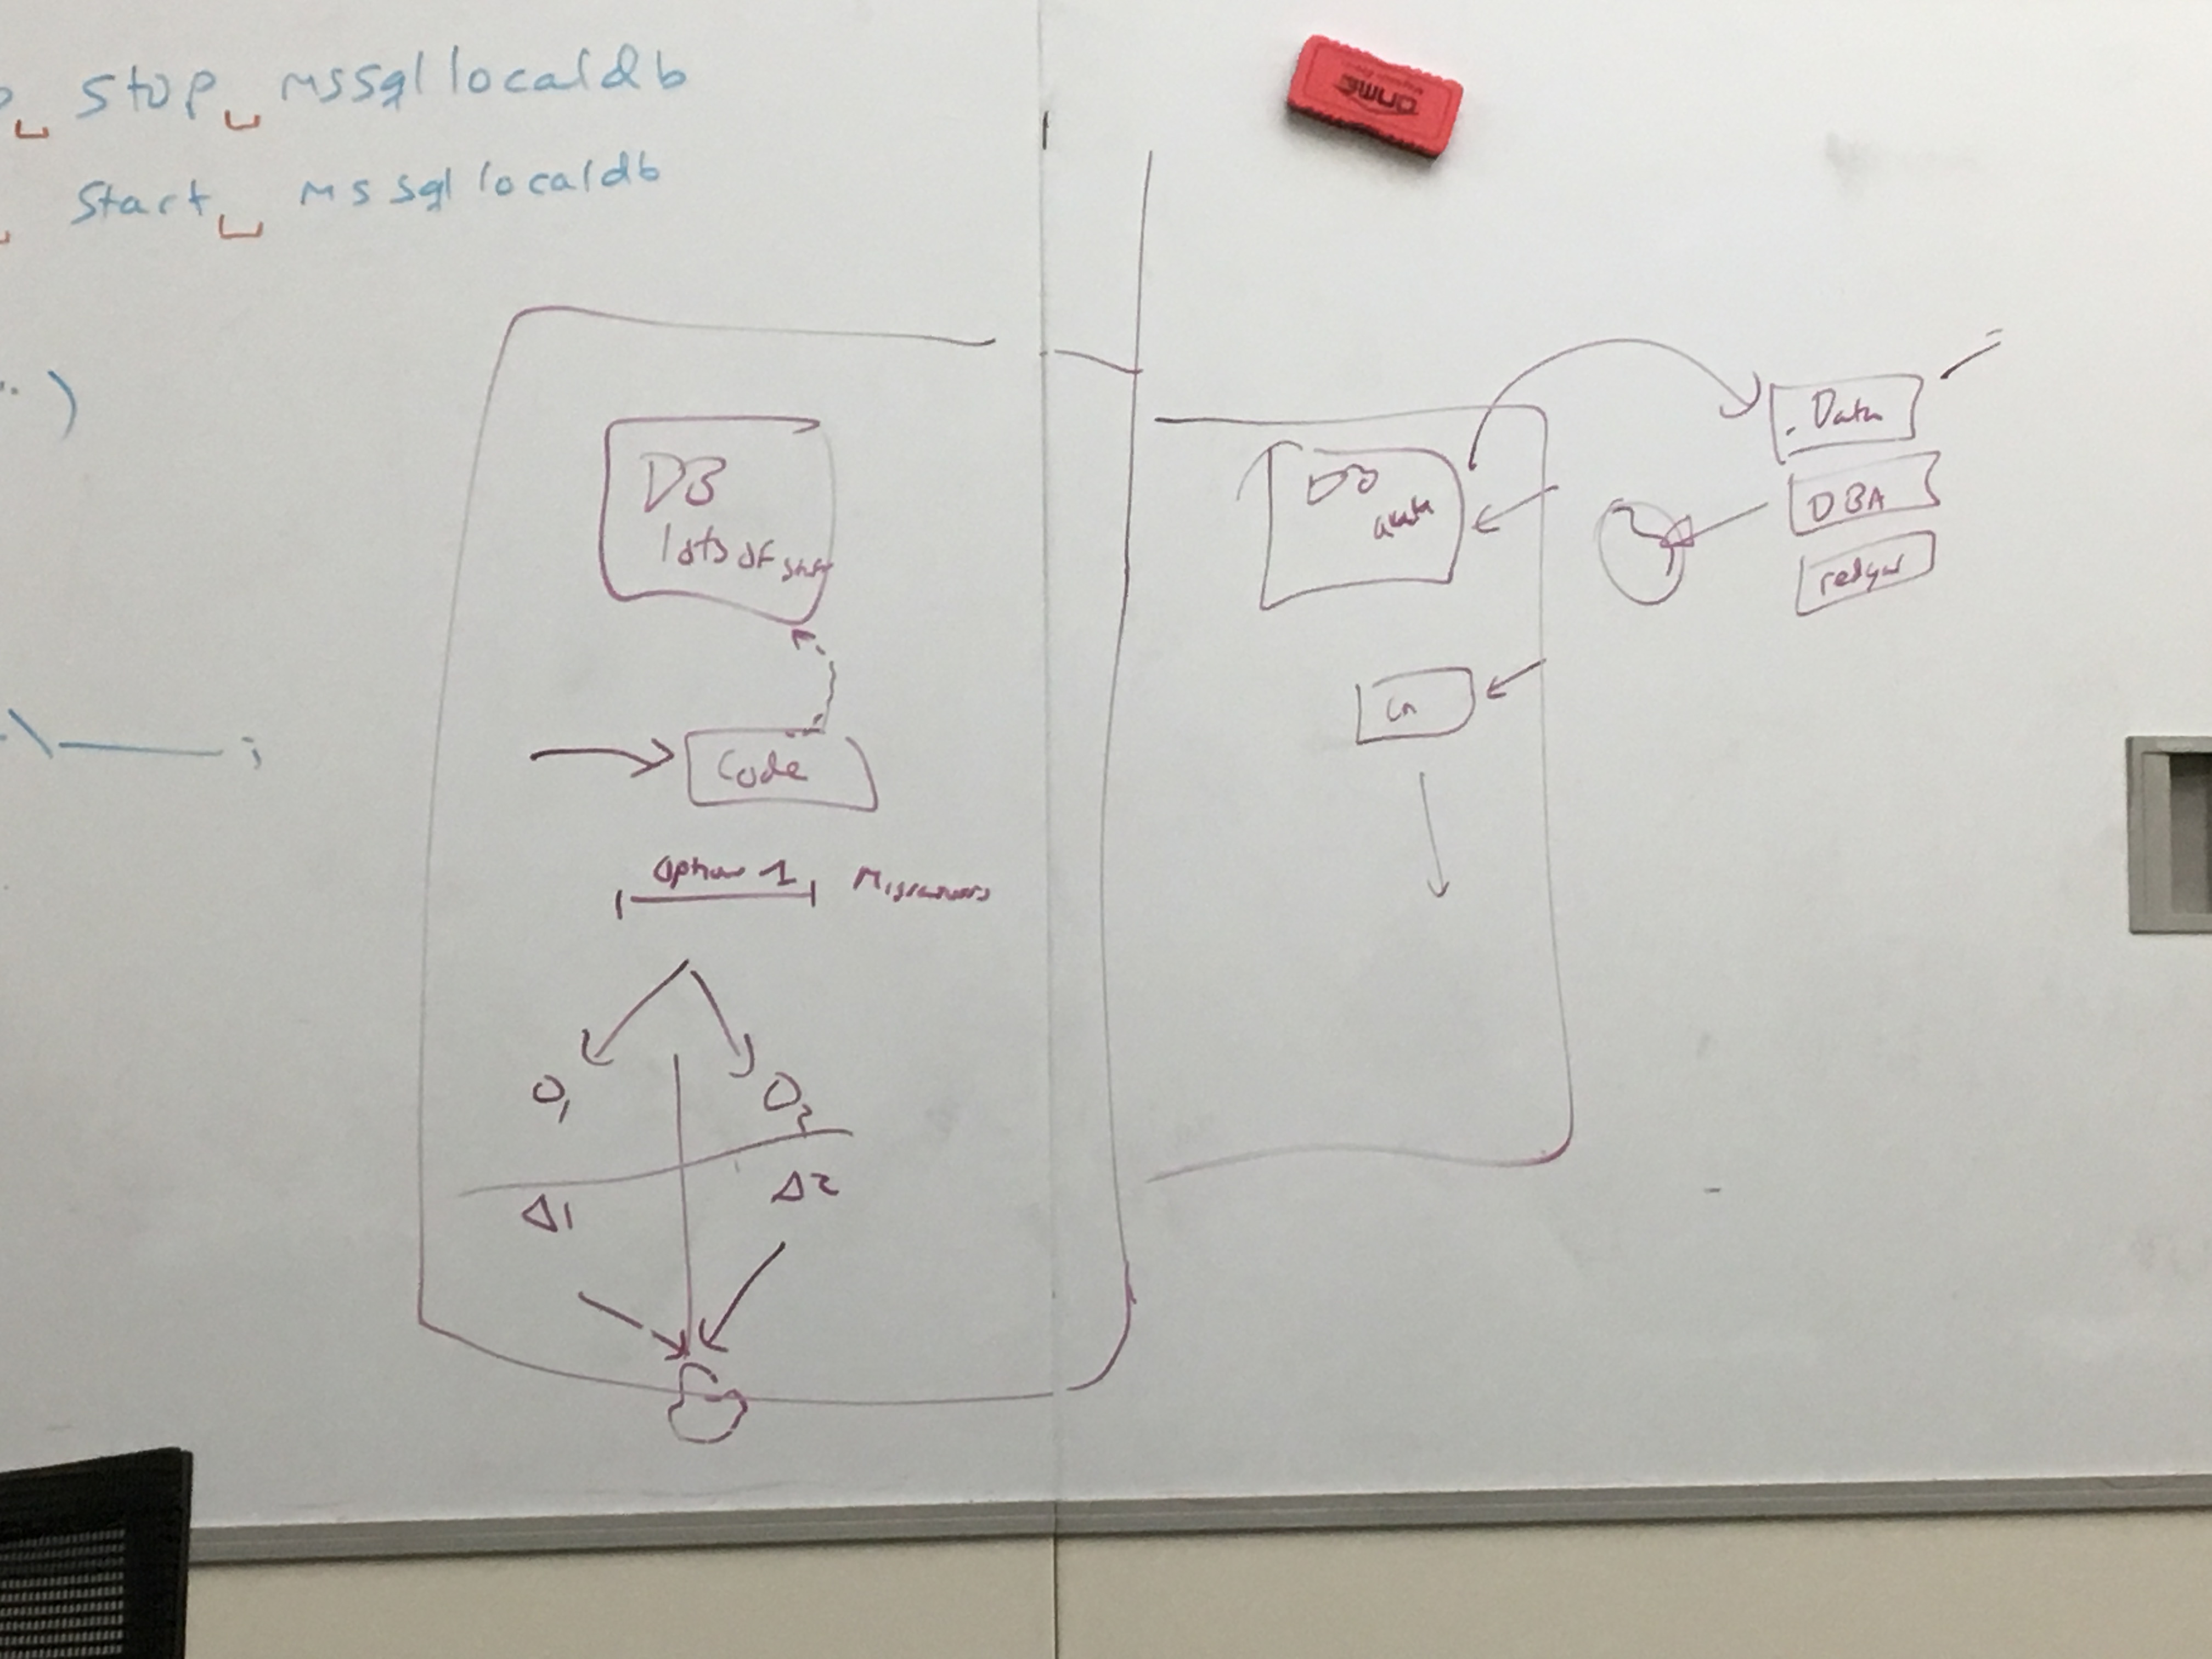 stop mssqllocaldb
Start mssqllocaldb
)
\ ;
DB
lots of stuff
Code
Option 1 Migrations
D1
D2
Δ1
Δ2
DB
Data
DBA